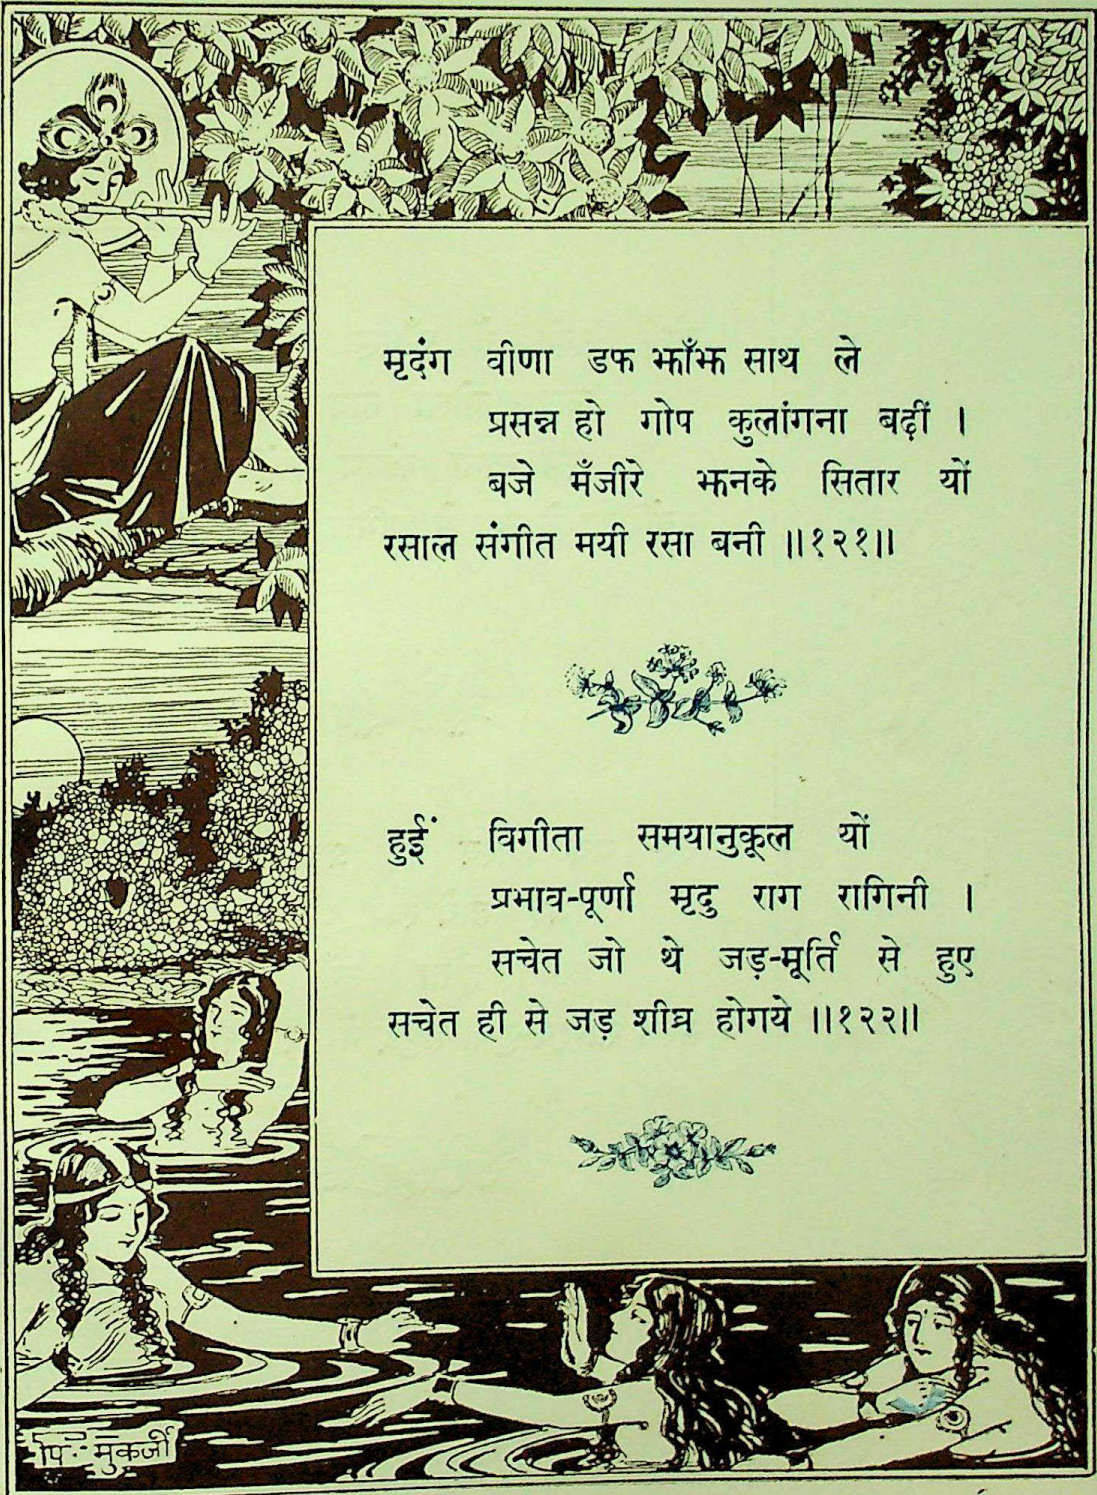 मृदंग वीणा डफ झाँझ साथ ले
प्रसन्न हो गोप कुलांगना बढ़ीं ।
बजे मँजीरे झनके सितार यों
रसाल संगीत मयी रसा बनी ॥१२१॥
हुईं विगीता समयानुकूल यों
प्रभाव-पूर्णा मृदु राग रागिनी ।
सचेत जो थे जड़-मूर्ति से हुए
सचेत ही से जड़ शीघ्र होगये ॥१२२॥
पि. मुकर्जी